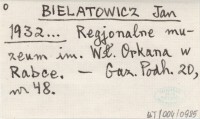 BIELATOWICZ Jan
1932... Regjonalne mu-
zeum im. Wł. Orkana w
Rabce. — Gaz. Podh. 20,
nr 48.